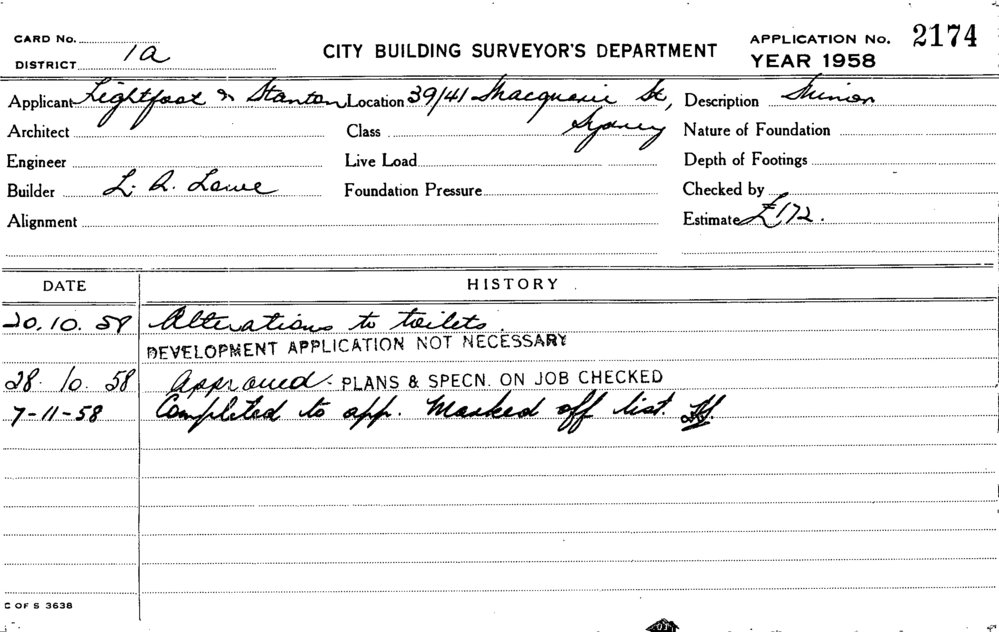 CARD No.
DISTRICT 1a
CITY BUILDING SURVEYOR'S DEPARTMENT
APPLICATION No. 2174
YEAR 1958
Applicant Lightfoot & Stanton Location 39/41 Macquarie St, Description Minor
Architect Class Sydney Nature of Foundation
Engineer Live Load Depth of Footings
Builder L. A. Lowe Foundation Pressure Checked by
Alignment Estimate £172.
DATE HISTORY
20.10.58 Alterations to toilets.
DEVELOPMENT APPLICATION NOT NECESSARY
28.10.58 Approved - PLANS & SPECN. ON JOB CHECKED
7-11-58 Completed to app. Marked off list.
C OF S 3638